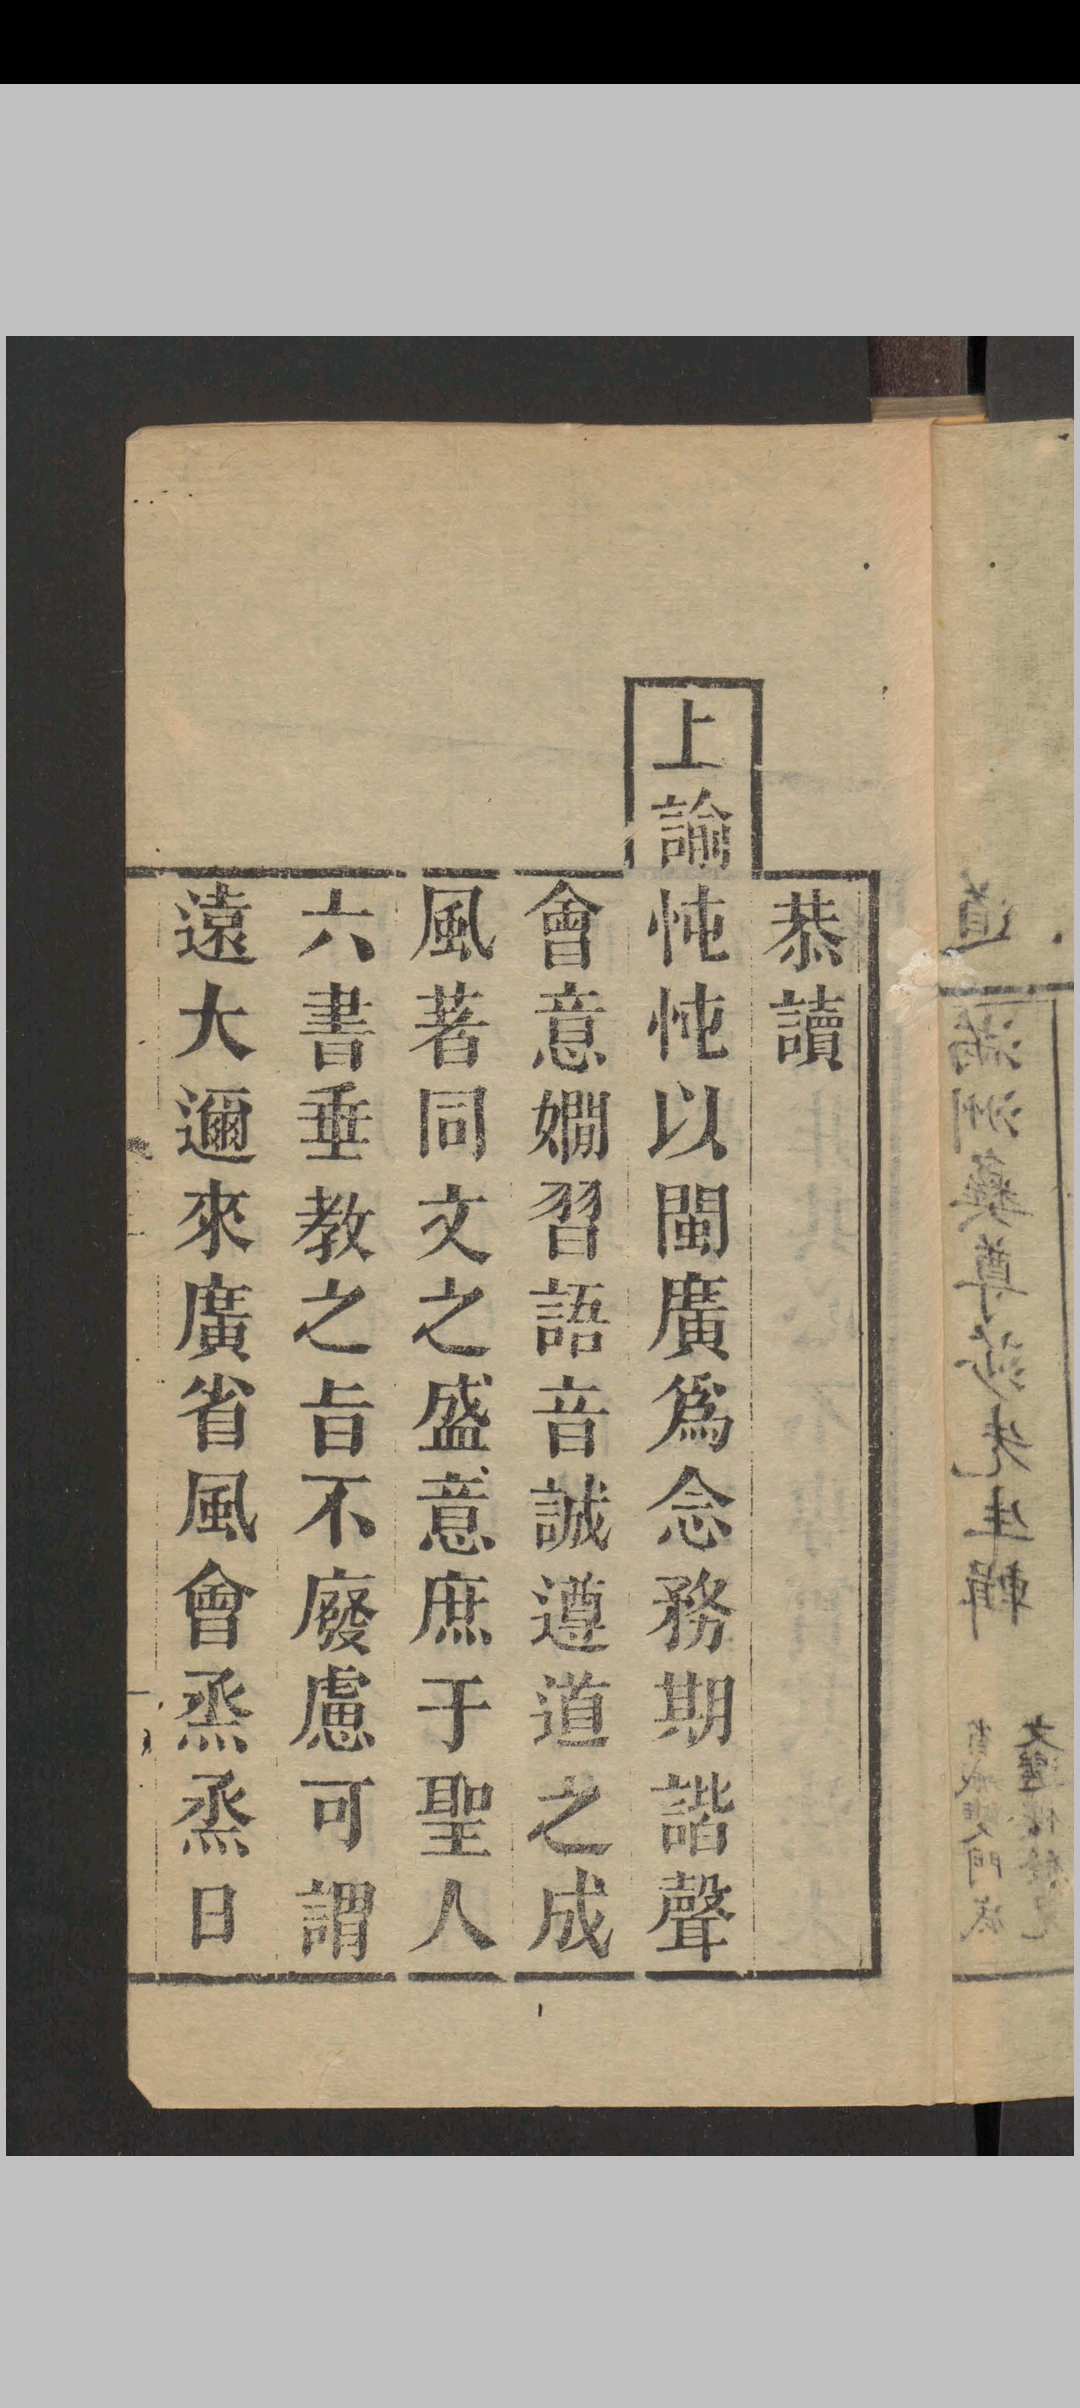 恭讀
上諭忳忳以閩廣爲念務期諧聲
會意嫺習語音誠遵道之成
風著同文之盛意庶于聖人
六書垂教之旨不廢慮可謂
遠大邇來廣省風會烝烝日
道
滿洲
尊
先生輯